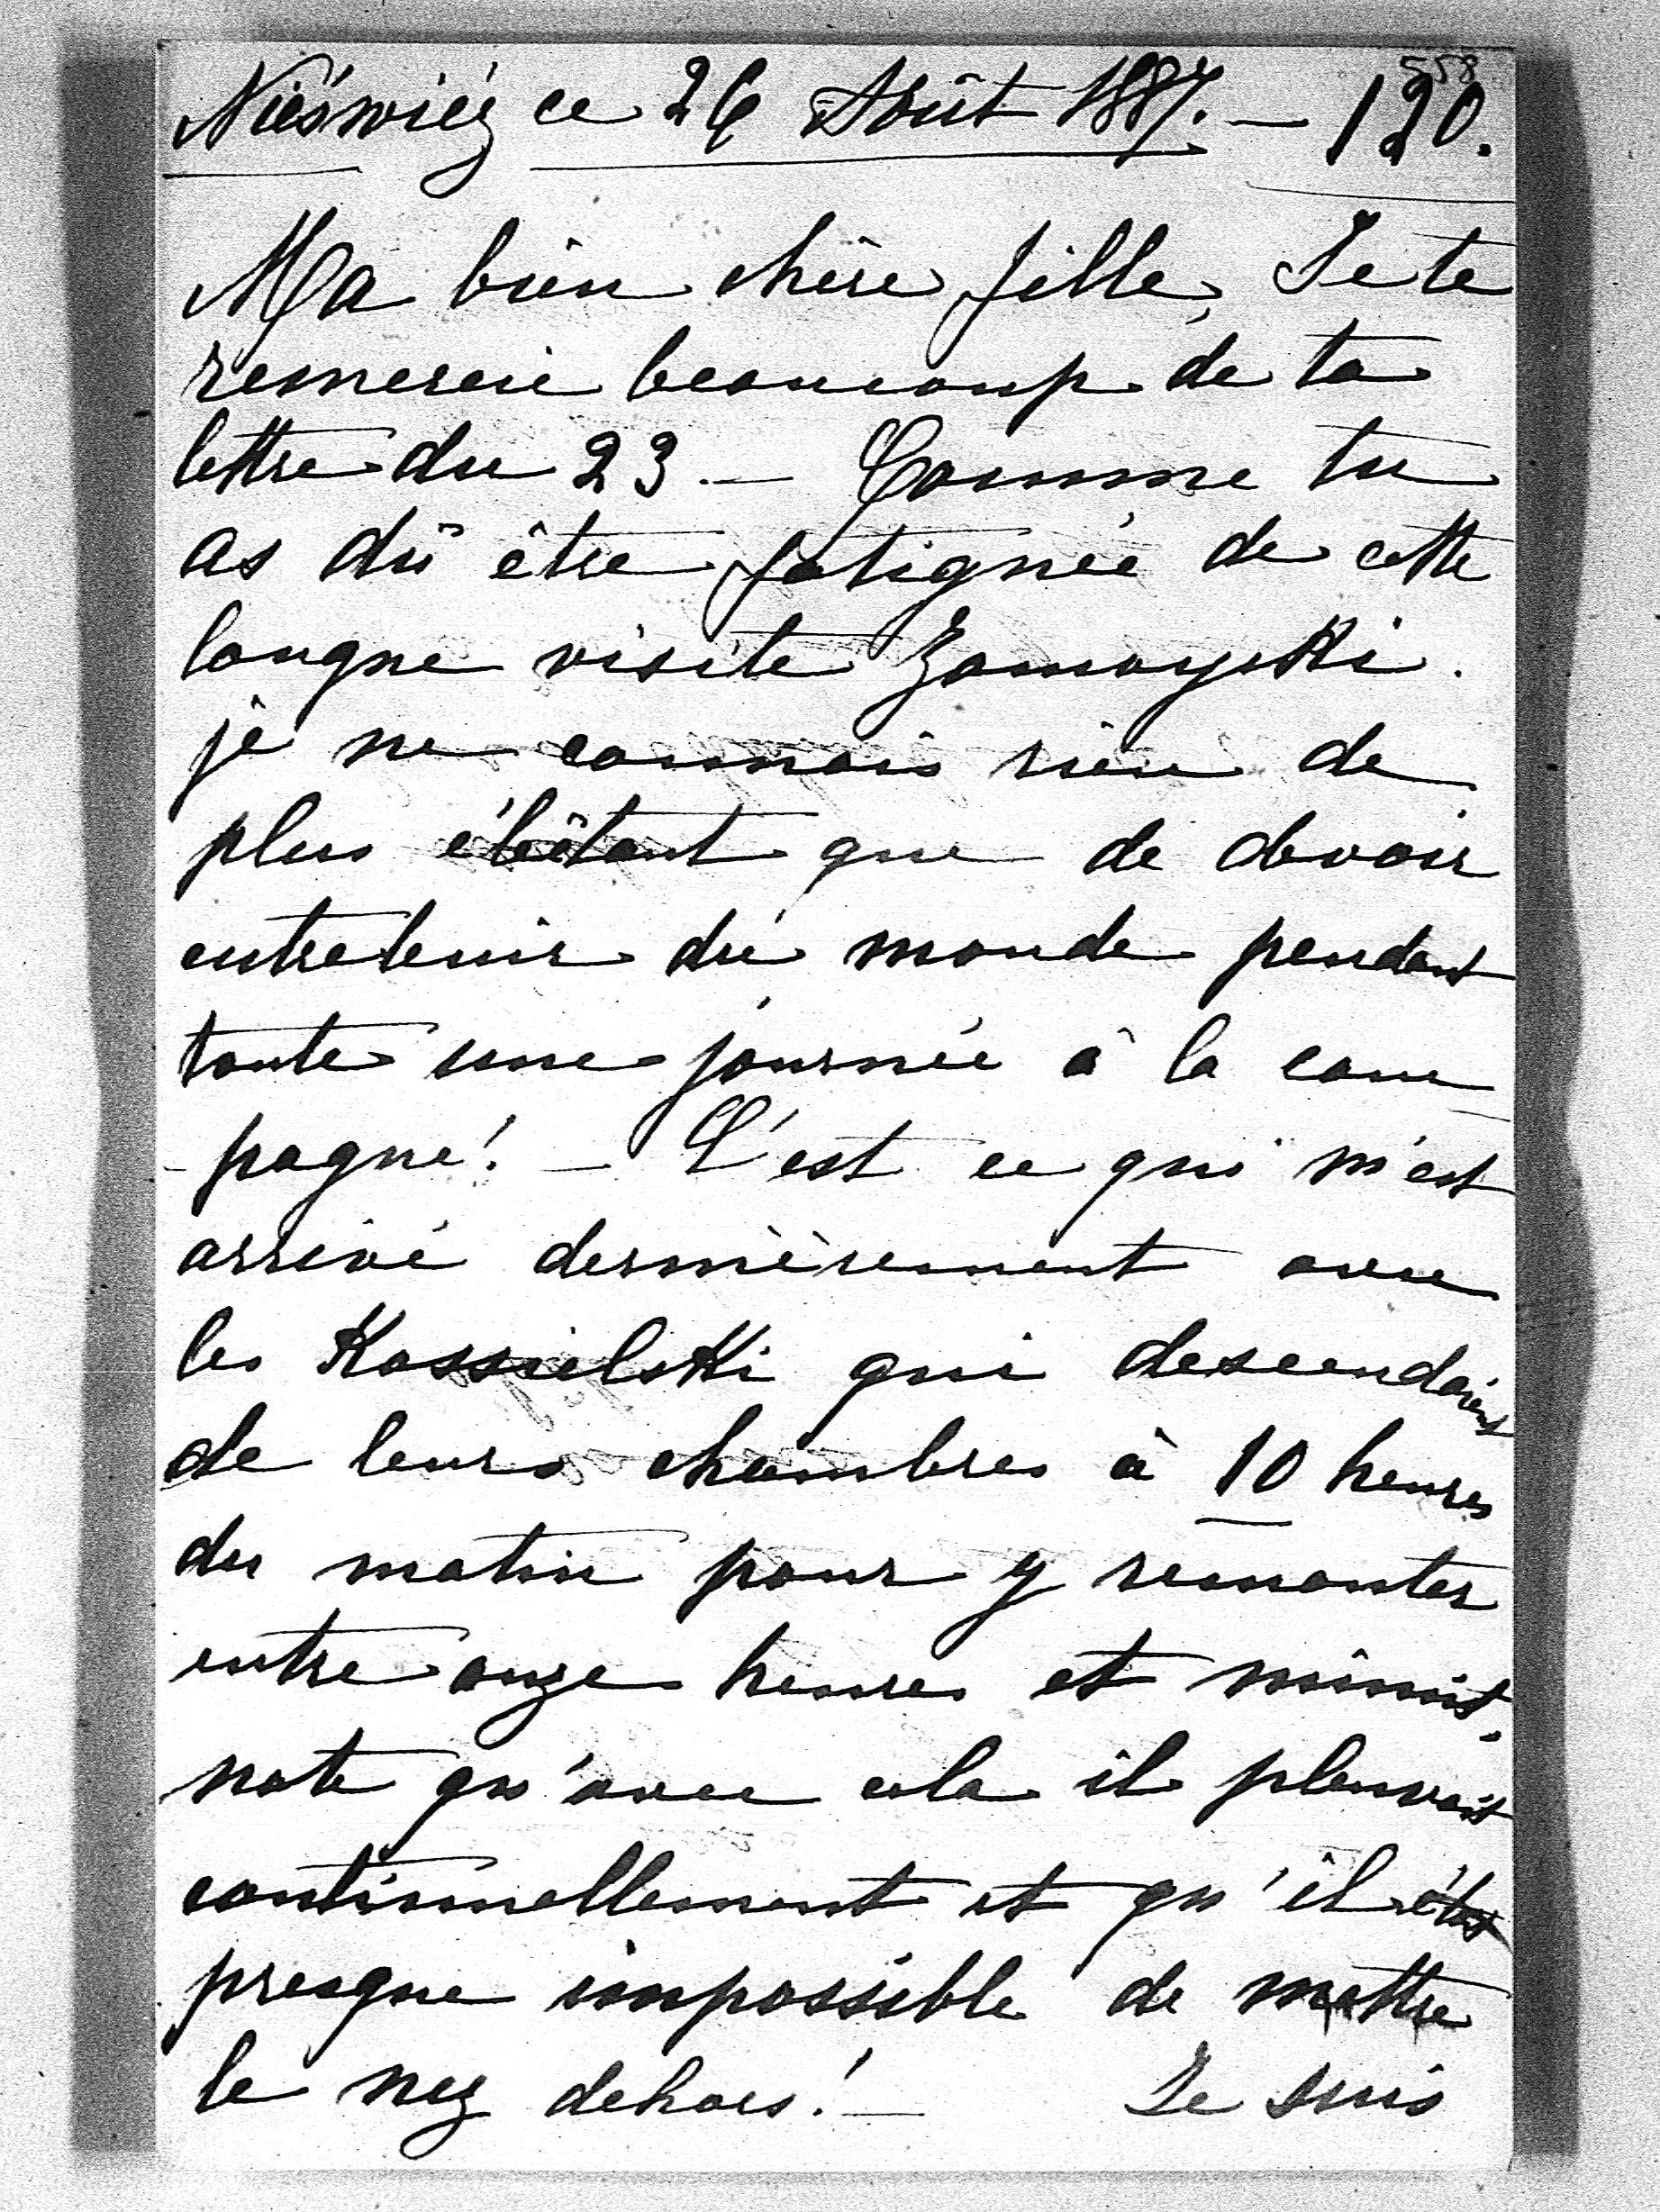 558
Nieśwież ce 26 Août 1887. — 120.
Ma bien chère fille, Je te
remercie beaucoup de ta
lettre du 23. — Comme tu
as dû être fatignée de cette
longue visite Zamoyski.
je ne connais rien de
plus ébêtant que de devoir
entretenir du monde pendant
toute une journée à la cam
-pagne! — C'est ce qui m'est
arrivé dernièrement avec
les Kossielski qui descendaient
de leurs chambres à 10 heures
du matin pour y remonter
entre onze heures et minuit.
note qu'avec cela il pleuvait
continuellement et qu'il était
presque impossible de mettre
le nez dehors! — Je suis